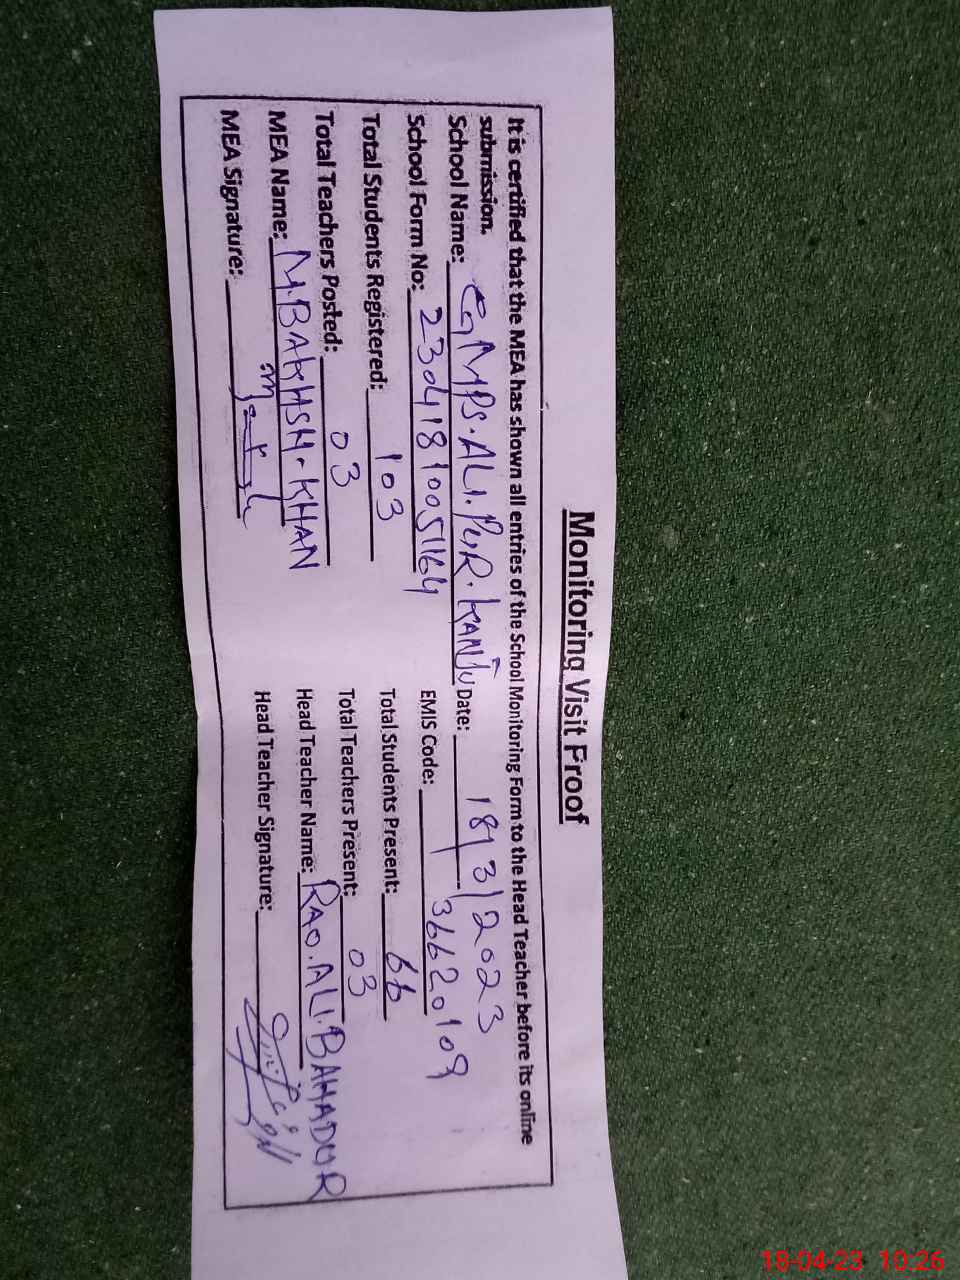 Monitoring Visit Proof
It is certified that the MEA has shown all entries of the School Monitoring Form to the Head Teacher before its online
submission.
School Name: GMPS.ALI.PUR.KANJU Date: 18/3/2023
School Form No: 23041810051164 EMIS Code: 36620109
Total Students Registered: 103 Total Students Present: 66
Total Teachers Posted: 03 Total Teachers Present: 03
MEA Name: M.BAKHSH.KHAN Head Teacher Name: RAO.ALI.BAHADUR
MEA Signature: Head Teacher Signature:
18-04-23 10:26